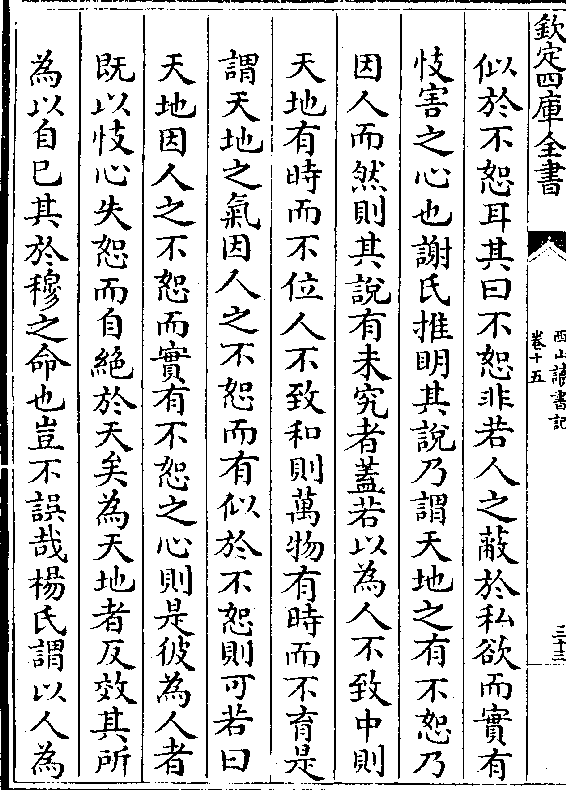 欽定四庫全書
西山讀書記
卷十五
三十三
似於不恕耳其曰不恕非若人之蔽於私欲而實有
忮害之心也謝氏推明其說乃謂天地之有不恕乃
因人而然則其說有未究者蓋若以為人不致中則
天地有時而不位人不致和則萬物有時而不育是
謂天地之氣因人之不恕而有似於不恕則可若曰
天地因人之不恕而實有不恕之心則是彼為人者
既以忮心失恕而自絶於天矣為天地者反效其所
為以自已其於穆之命也豈不誤哉楊氏謂以人為